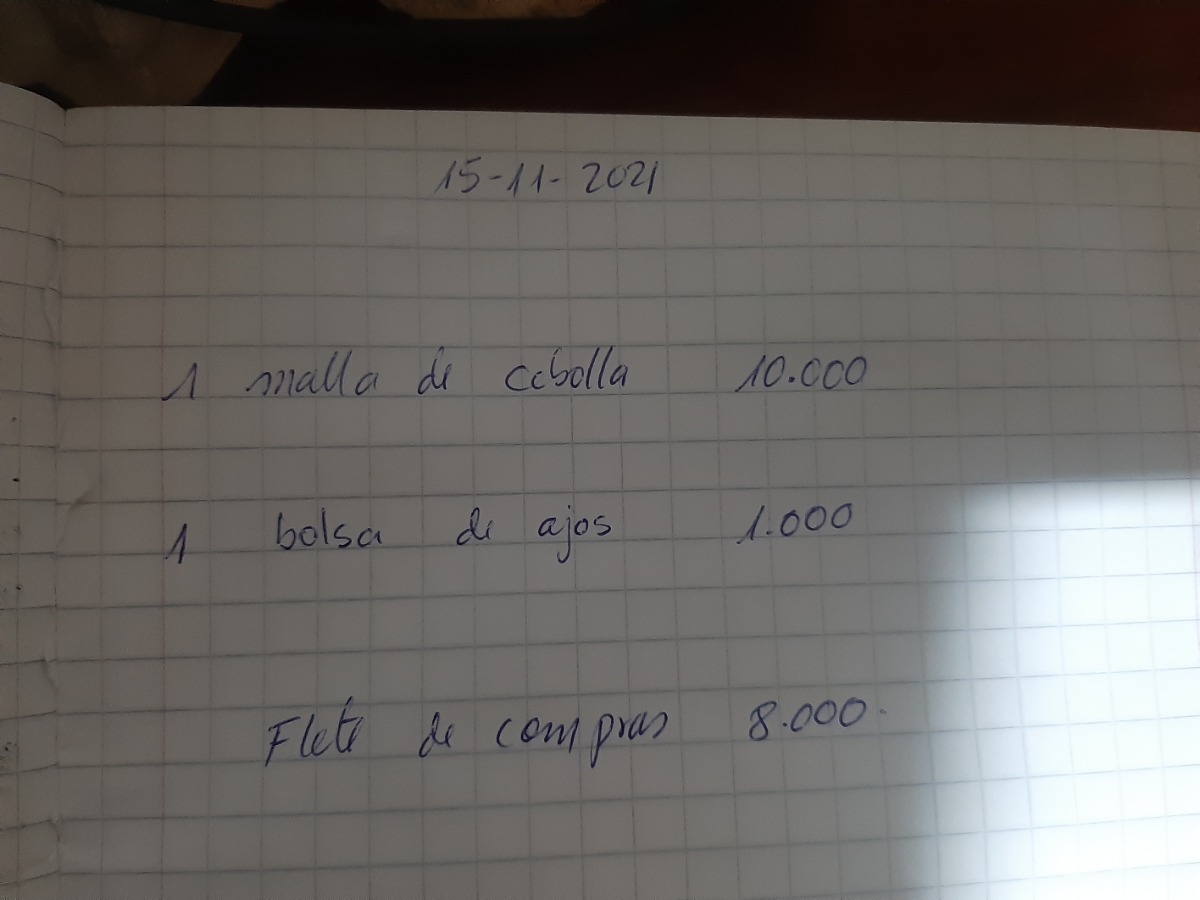 15-11-2021
1 malla de cebolla 10.000
1 bolsa de ajos 1.000
Flete de compras 8.000.